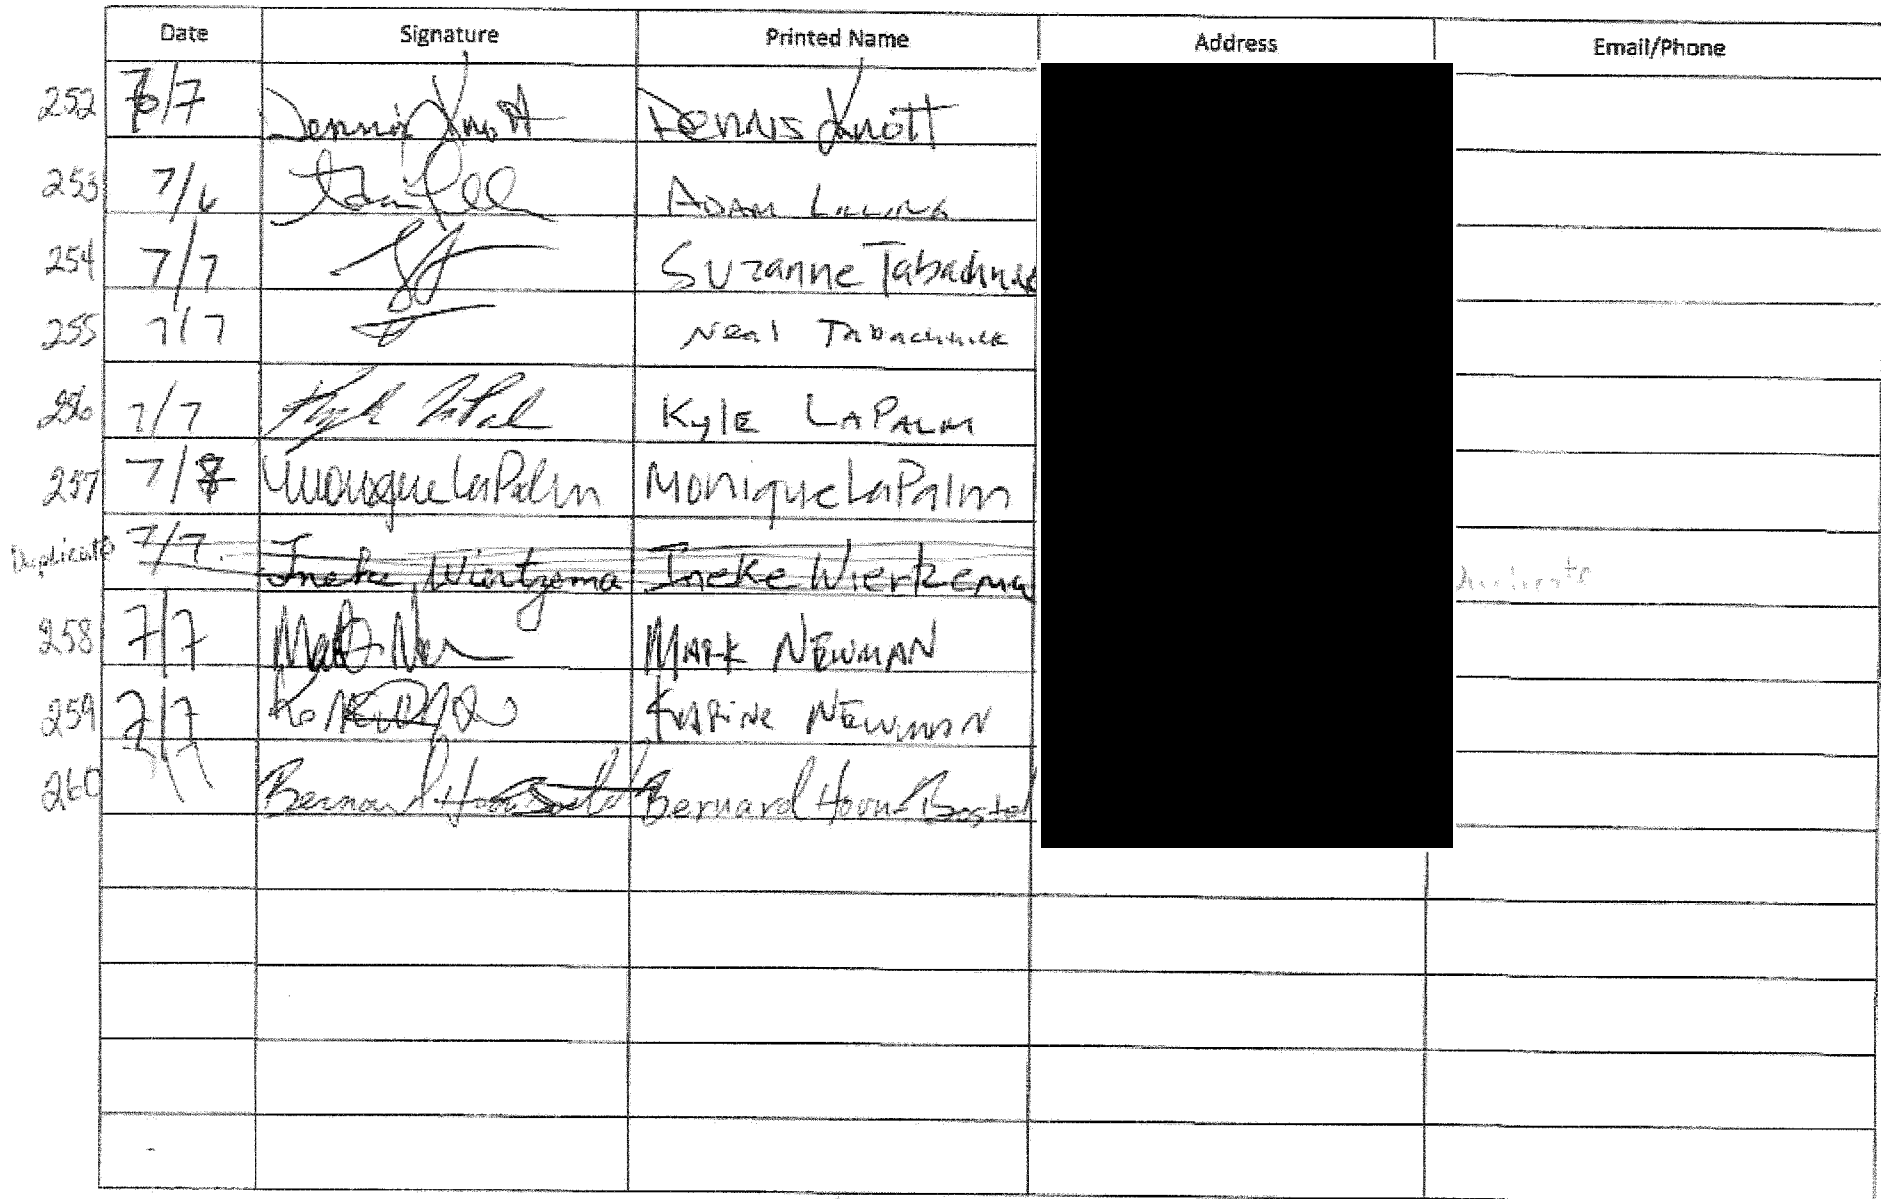 Date Signature Printed Name Address Email/Phone
252 7/7 Dennis Knott Dennis Knott
253 7/6 ADAM LILLING
254 7/7 Suzanne Tabachnick
255 7/7 Neal Tabachnick
256 7/7 Kyle LaPalm KylE LAPALM
257 7/8 Monique LaPalm Monique LaPalm
Duplicate 7/7 Ineke Wiertzema Ineke Wiertzema Duplicate
258 7/7 MARK NEWMAN
259 7/7 KARINE NEWMAN
260 7/7 Bernard Bernard